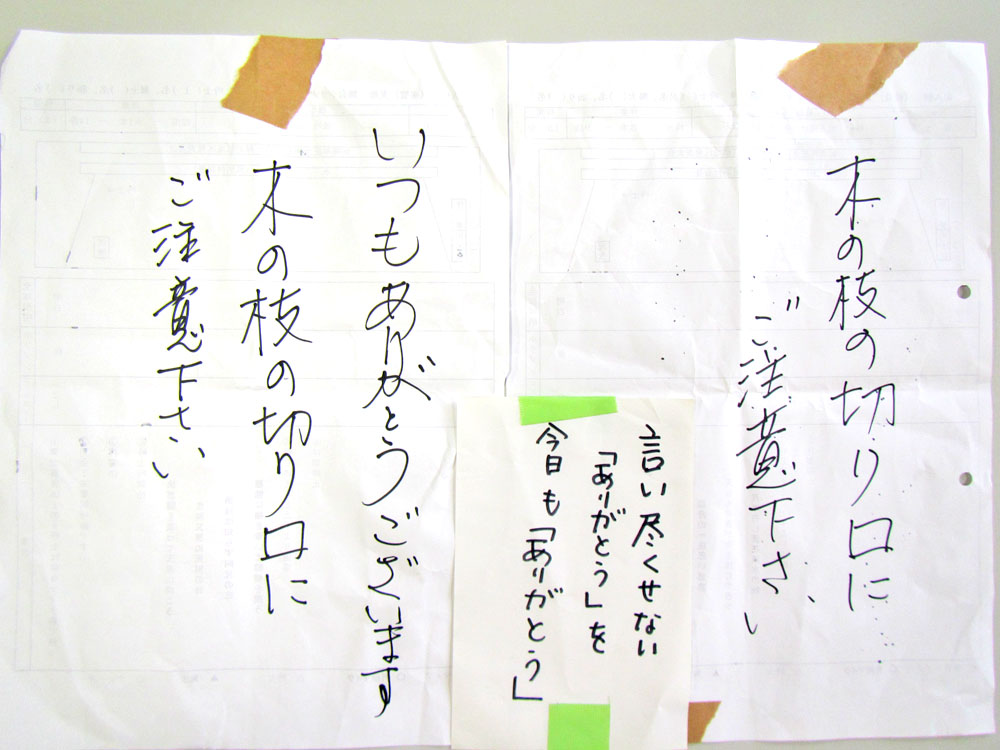 木の枝の切り口に
ご注意下さい
言い尽くせない
「ありがとう」を
今日も「ありがとう」
いつもありがとうございます
木の枝の切り口に
ご注意下さい